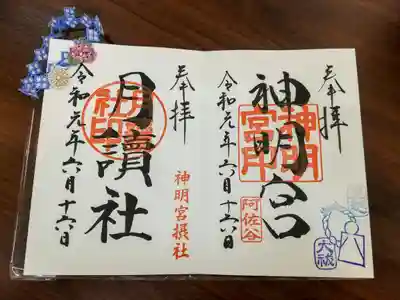 奉拝
神明宮
神明宮印
阿佐谷
令和元年六月十六日
大祓
奉拝
月讀社
神明宮摂社
令和元年六月十六日